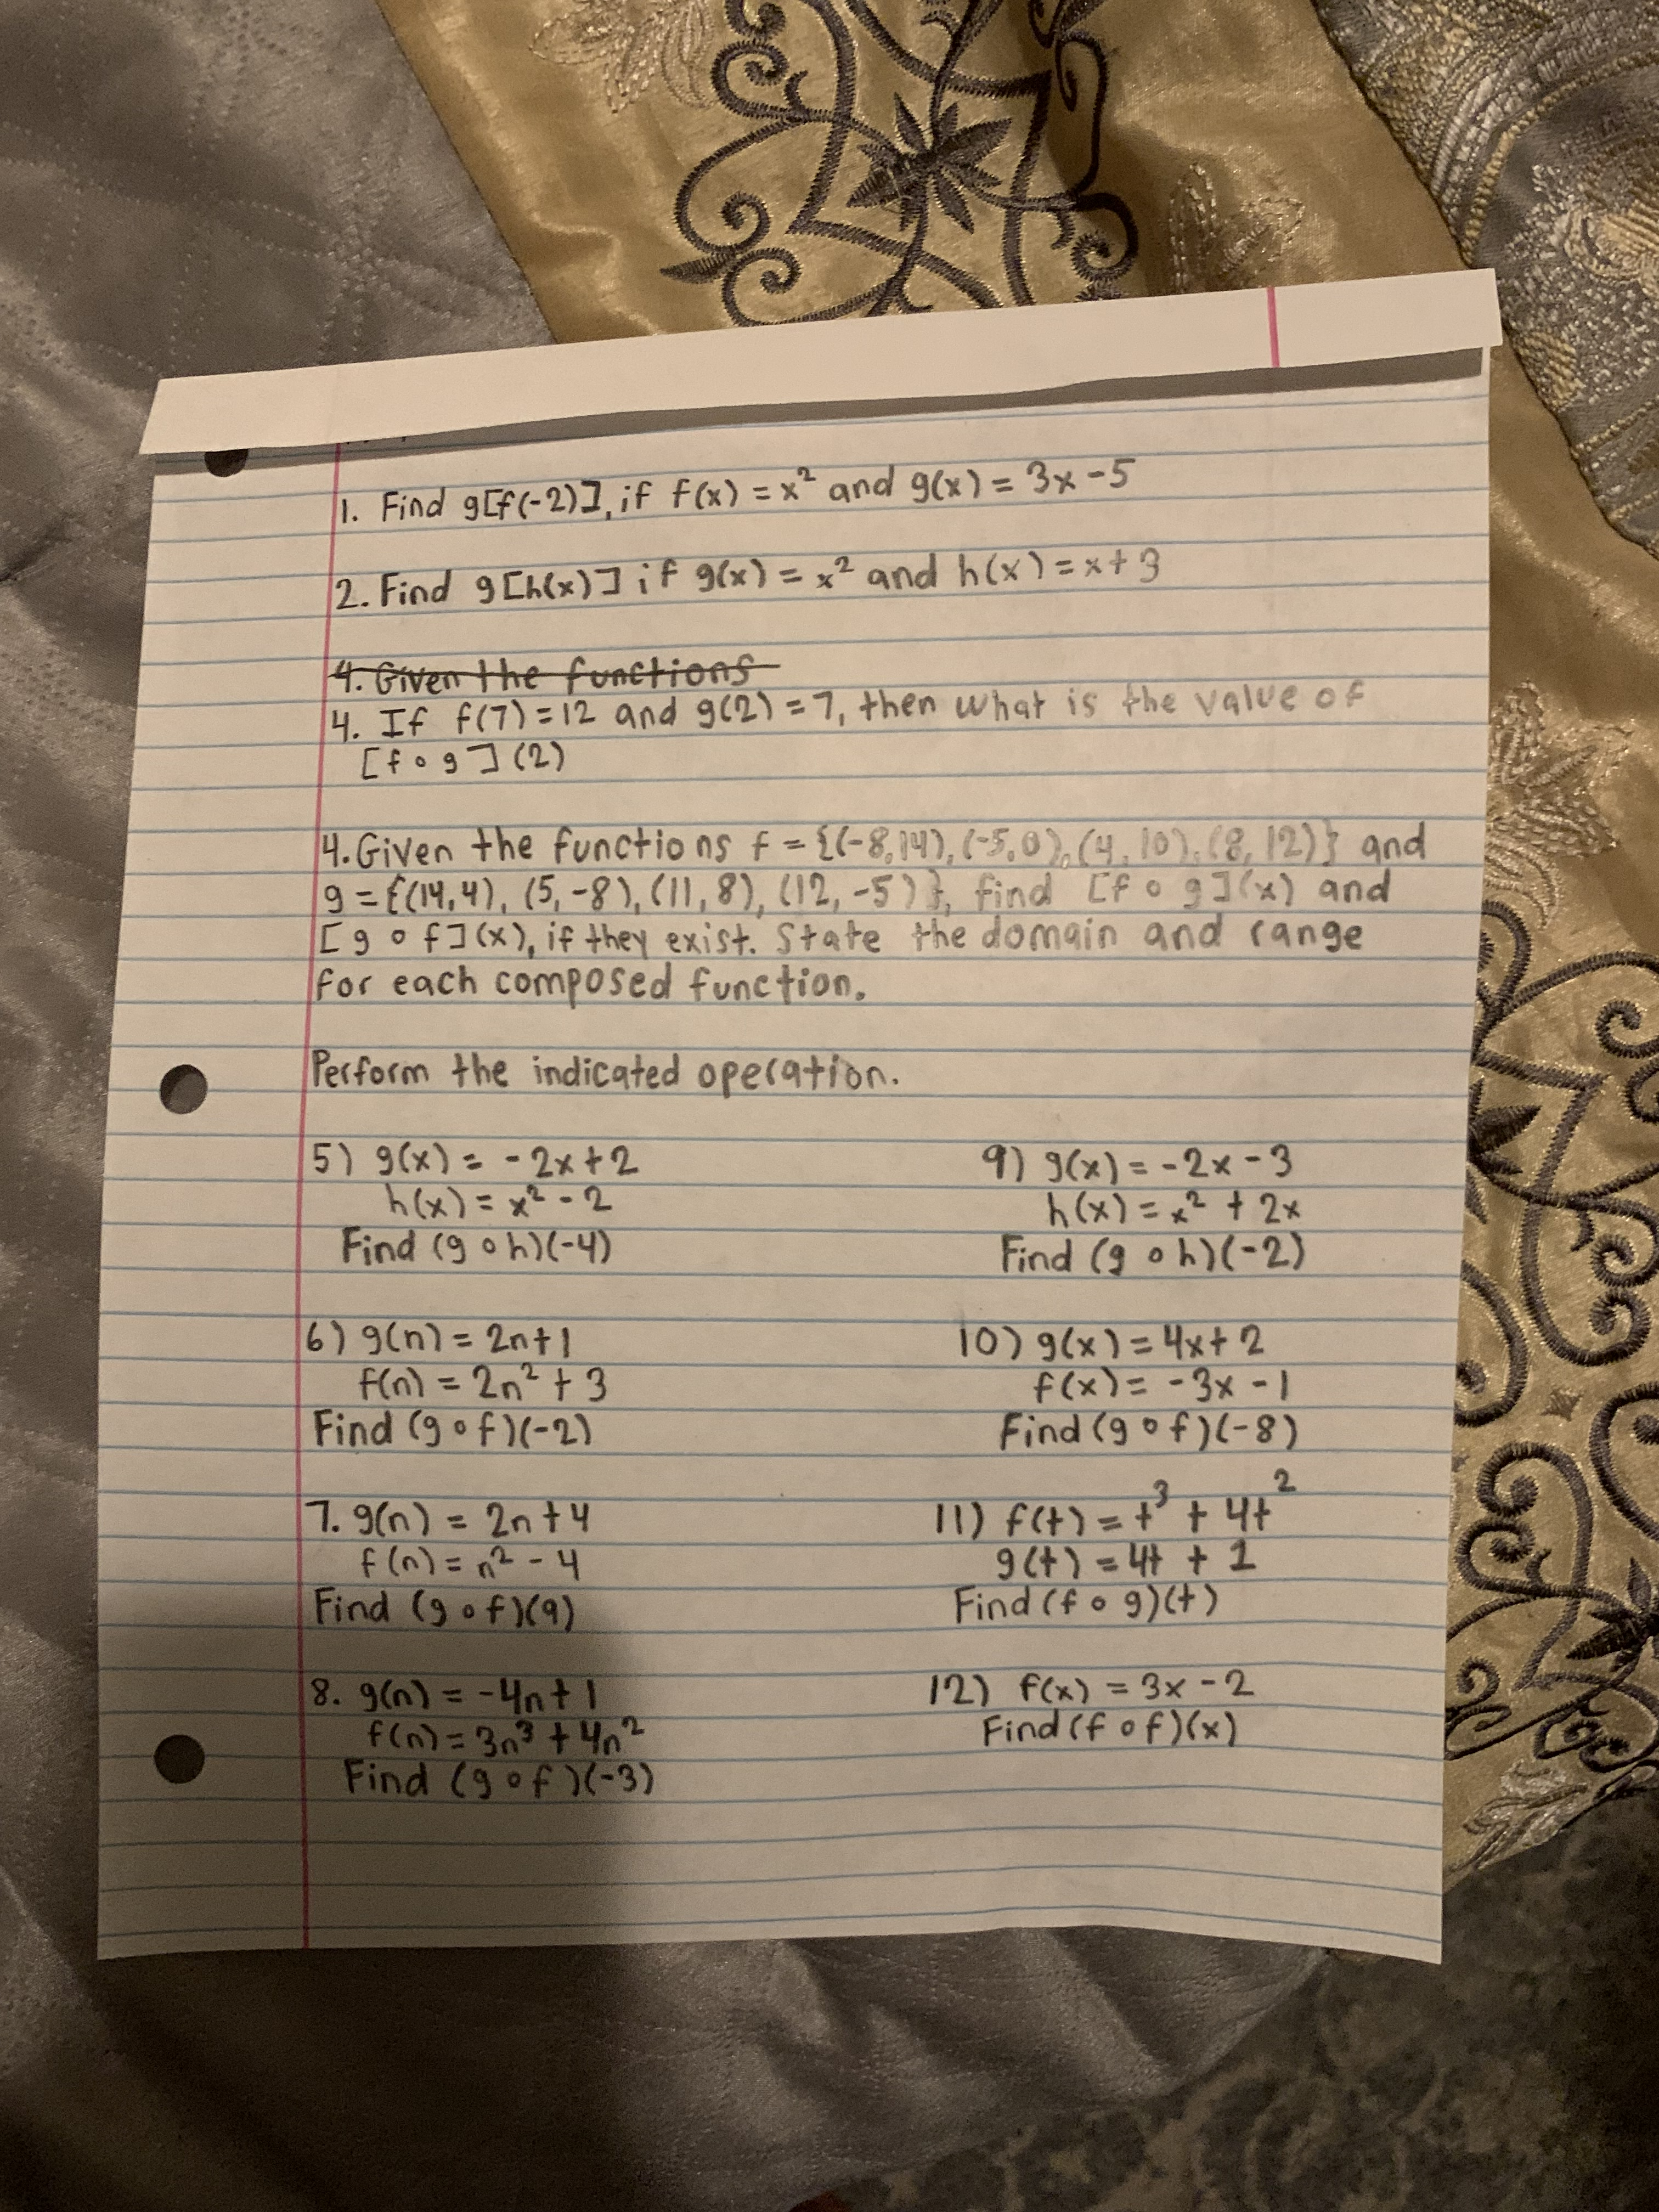 1. Find g[f(-2)], if f(x) = x² and g(x) = 3x - 5
2. Find g[h(x)] if g(x) = x² and h(x) = x + 3
4. Given the functions
4. If f(7) = 12 and g(2) = 7, then what is the value of
[f ∘ g](2)
4. Given the functions f = {(-8,14), (-5,0), (4,10), (8,12)} and
g = {(14,4), (5,-8), (11,8), (12,-5)}, find [f ∘ g](x) and
[g ∘ f](x), if they exist. State the domain and range
for each composed function.
Perform the indicated operation.
5) g(x) = -2x + 2
h(x) = x² - 2
Find (g ∘ h)(-4)
6) g(n) = 2n + 1
f(n) = 2n² + 3
Find (g ∘ f)(-2)
7. g(n) = 2n + 4
f(n) = n² - 4
Find (g ∘ f)(9)
8. g(n) = -4n + 1
f(n) = 3n³ + 4n²
Find (g ∘ f)(-3)
9) g(x) = -2x - 3
h(x) = x² + 2x
Find (g ∘ h)(-2)
10) g(x) = 4x + 2
f(x) = -3x - 1
Find (g ∘ f)(-8)
11) f(t) = t³ + 4t²
g(t) = 4t + 1
Find (f ∘ g)(t)
12) f(x) = 3x - 2
Find (f ∘ f)(x)